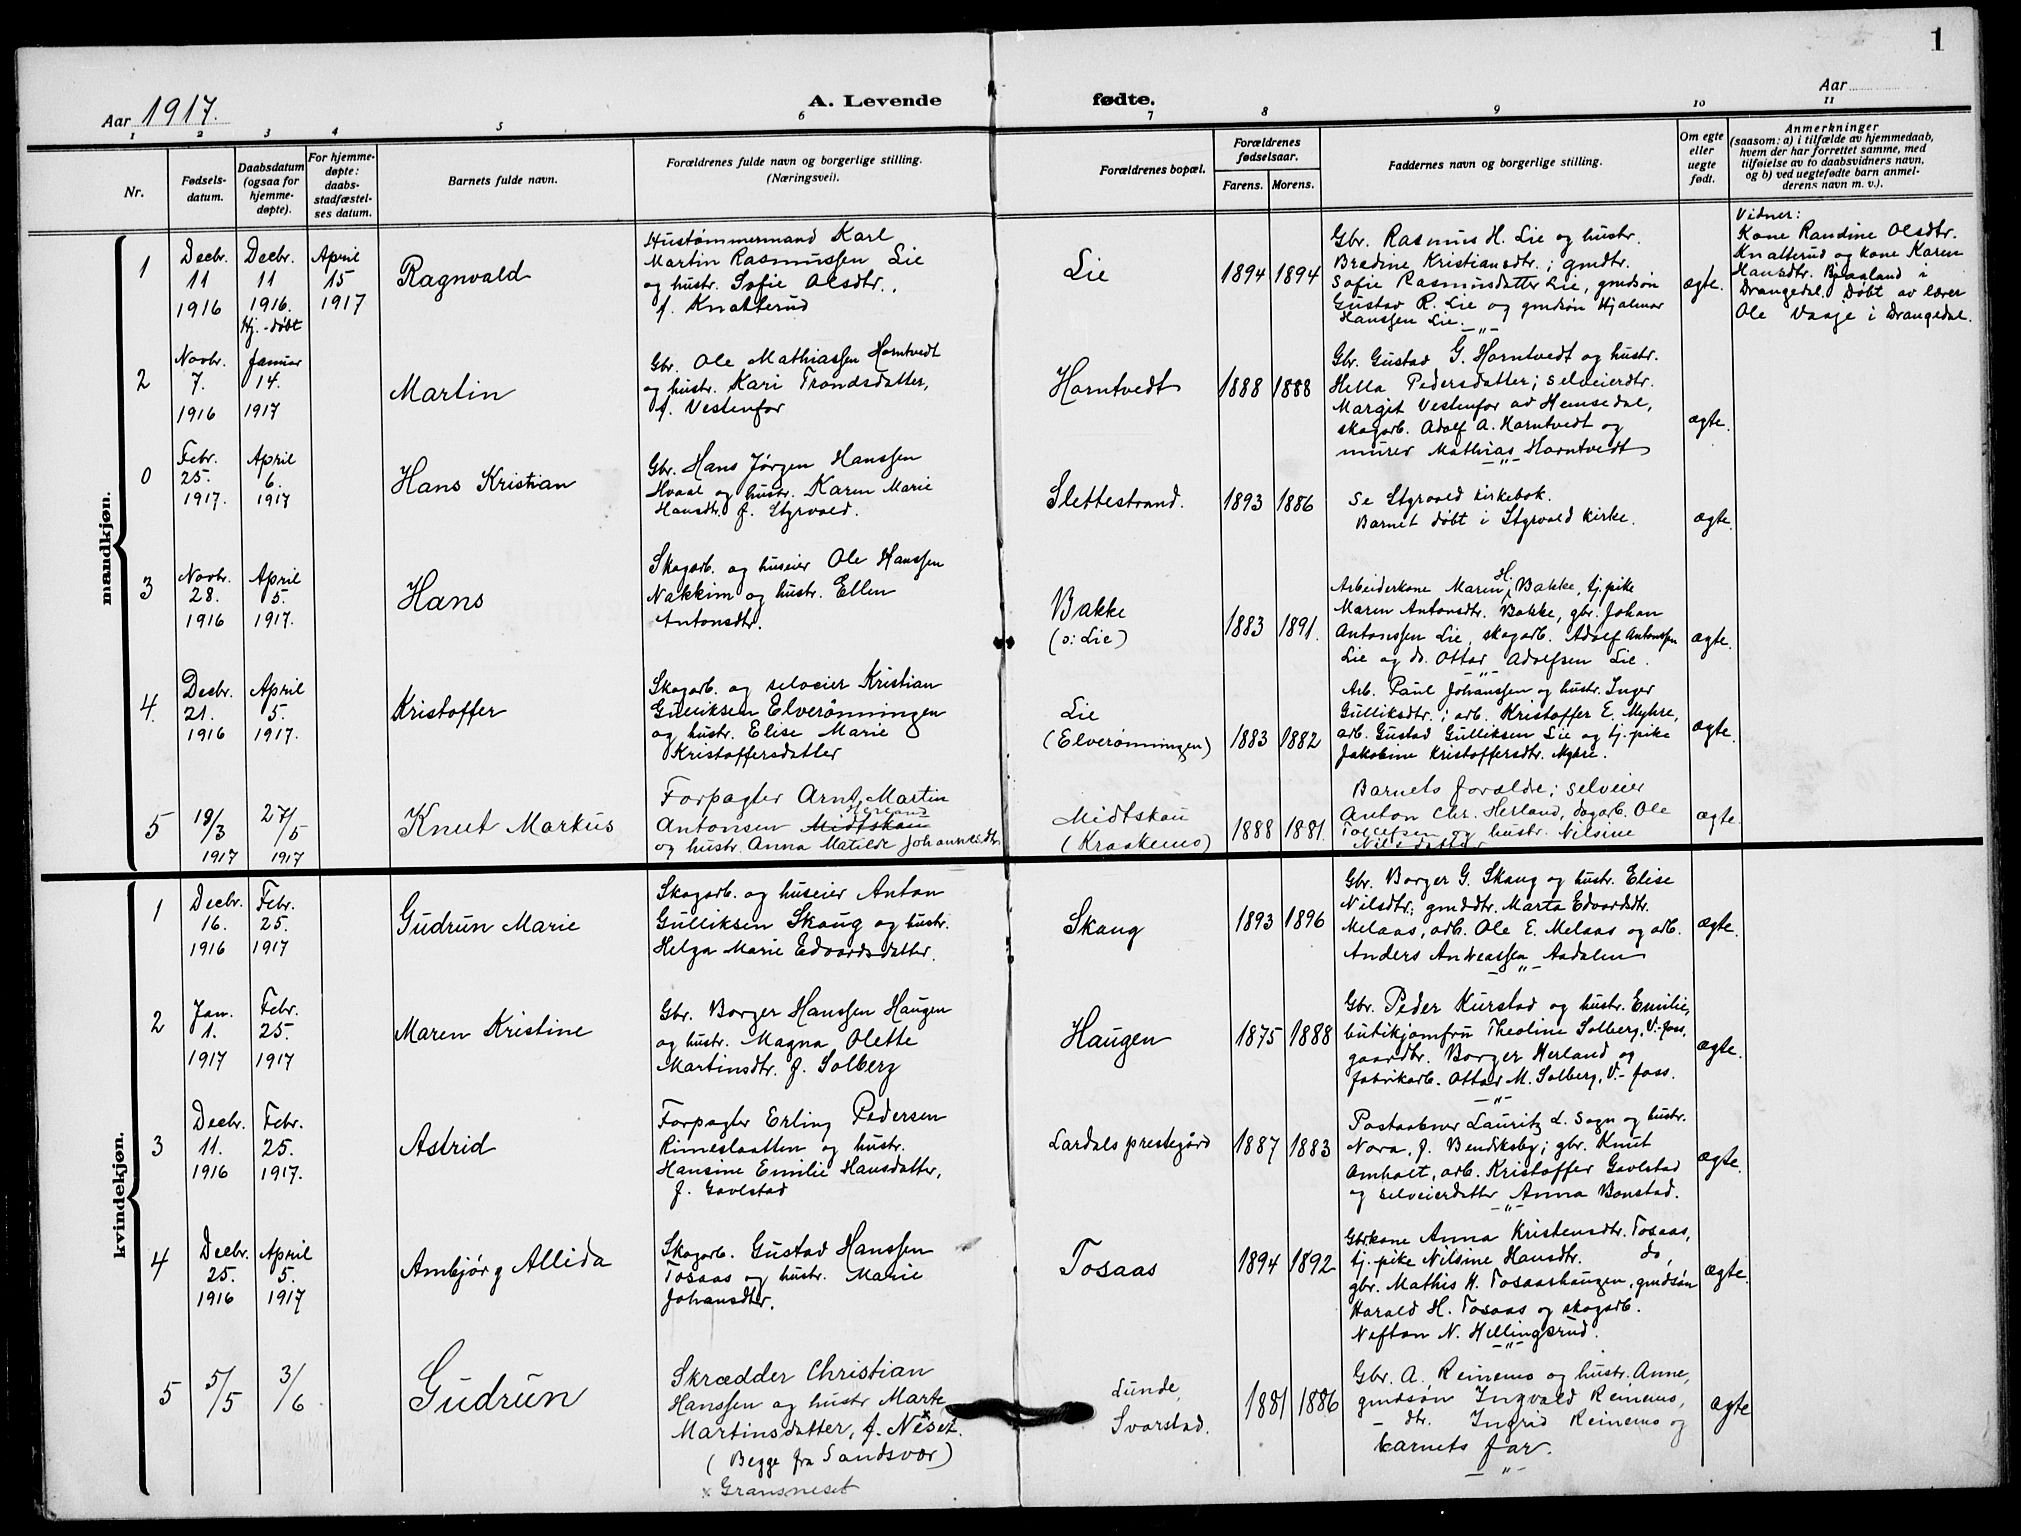 1
Aar 1917.
A. Levende fødte.
Aar
1 2 3 4 5 6 7 8 9 10 11
Nr.
Fødsels-
datum.
Daabsdatum
(ogsaa for
hjemme-
døpte).
For hjemme-
døpte:
daabs-
stadfæstel-
ses datum.
Barnets fulde navn.
Forældrenes fulde navn og borgerlige stilling.
(Næringsvei).
Forældrenes bopæl.
Forældrenes
fødselsaar.
Farens. Morens.
Faddernes navn og borgerlige stilling.
Om egte
eller
uegte
født.
Anmerkninger
(saasom: a) i tilfælde av hjemmedaab,
hvem der har forrettet samme, med
tilføielse av to daabsvidners navn,
og b) ved uegtefødte barn anmel-
derens navn m. v.).
mandkjøn.
1
Decbr.
11
1916
Decbr.
11
1916.
Hj.-døbt
April
15
1917
Ragnvald
Hustømmermand Karl
Martin Rasmussen Lie
og hustr. Sofie Olsdtr.,
f. Knatterud
Lie
1894 1894
Gbr. Rasmus H. Lie og hustr.
Bredine Kristiansdtr.; gmdtr.
Sofie Rasmusdatter Lie, gmdsøn
Gustav R. Lie og gmdsøn Hjalmar
Hanssen Lie.
-"-
ægte.
Vidner:
Kone Randine Olsdtr.
Knatterud og kone Karen
Hansdtr. Braaland i
Drangedal. Døbt av lærer
Ole Vaage i Drangedal.
2
Novbr.
7.
1916
Januar
14.
1917
Martin
Gbr. Ole Mathiassen Horntvedt
og hustr. Kari Trondsdatter,
f. Vestenfor
Horntvedt
1888 1888
Gbr. Gustav G. Horntvedt og hustr.
Hella Pedersdatter; selveierdtr.
Margit Vestenfor av Hemsedal,
skogarb. Adolf A. Horntvedt og
murer Mathias Horntvedt
-"-
ægte.
0
Febr.
25.
1917.
April
6.
1917
Hans Kristian
Gbr. Hans Jørgen Hanssen
Hvaal og hustr. Karen Marie
Hansdtr. f. Styrvold.
Slettestrand.
1893 1886
Se Styrvold kirkebok.
Barnet døbt i Styrvold kirke.
ægte.
3
Novbr.
28.
1916
April
5.
1917.
Hans
Skogarb. og huseier Ole Hanssen
Nakkim og hustr. Ellen
Antonsdtr.
Bakke
(o: Lie)
1883 1891.
Arbeiderkone Maren H. Bakke, tj. pike
Maren Antonsdtr. Bakke, gbr. Johan
Antonssen Lie, skogarb. Adolf Antonssen
Lie og do. Ottar Adolfsen Lie.
-"-
ægte.
4.
Decbr.
21.
1916
April
5.
1917.
Kristoffer
Skogarb. og selveier Kristian
Gulliksen Elverønningen
og hustr. Elise Marie
Kristoffersdatter
Lie
(Elverønningen)
1883 1882
Arb. Paul Johanssen og hustr. Inger
Gulliksdtr.; arb. Kristoffer E. Myhre,
arb. Gustav Gulliksen Lie og tj. pike
Jakobine Kristoffersdtr. Myhre.
ægte.
5
19/3
1917
27/5
1917
Knut Markus
Forpagter Arnt Martin
Antonsen Midtskau Herland
og hustr. Anna Matilde Johannesdtr.
Midtskau
(Kraakemo)
1888 1881.
Barnets forældre; selveier
Anton Chr. Herland, dagarb. Ole
og hustr. Nilsine
Nilsdatter
ægte.
kvindekjøn.
1
Decbr.
16.
1916
Febr.
25.
1917
Gudrun Marie
Skogarb. og huseier Anton
Gulliksen Skaug og hustr.
Helga Marie Edvardsdatter.
Skaug
1893 1896
Gbr. Borger G. Skaug og hustr. Elise
Nilsdtr.; gmddtr. Marta Edvardsdtr.
Melaas, arb. Ole E. Melaas og arb.
Anders Andreassen Aadalen
-"-
ægte.
2
Jan.
1.
1917
Febr.
25.
1917
Maren Kristine
Gbr. Borger Hanssen Haugen
og hustr. Magna Olette
Martinsdtr. f. Solberg
Haugen
1875 1888
Gbr. Peder Kurstad og hustr. Emilie,
butikjomfru Theoline Solberg, V.-foss,
gaardbr. Borger Herland og
fabrikarb. Ottar M. Solberg, V.-foss.
-"-
ægte.
3
Decbr.
11.
1916
Febr.
25.
1917.
Astrid
Forpagter Erling Pedersen
Rimeslaatten og hustr.
Hansine Emilie Hansdatter,
f. Gavlstad
Lardals prestegård
1887 1883
Postaabner Lauritz L. Sogn og hustr.
Nora, f. Bendiksby; gbr. Knut
Omholt, arb. Kristoffer Gavlstad
og selveierdatter Anna Bonstad.
-"-
ægte.
4
Decbr.
25.
1916
April
5.
1917
Ambjørg Allida
Skogarb. Gustav Hanssen
Tosaas og hustr. Marie
Johansdtr.
Tosaas
1894 1892
Gbrkone Anna Kristensdtr. Tosaas,
tj. pike Nilsine Hansdtr. do,
gbr. Mathis H. Tosaashaugen, gmdsøn
Harald H. Tosaas og skogarb.
Neftan N. Hellingsrud.
-"-
ægte.
5
5/5
3/6
Gudrun
Skrædder Christian
Hanssen og hustr Marte
Martinsdatter, f. Neset. x
(Begge fra Sandsvær)
x Gransneset
Lunde,
Svarstad.
1881 1886
Gbr. A. Reinemo og hustr. Anne,
gmdsøn Ingvald Reinemo,
- dtr. Ingrid Reinemo og
barnets far.
-"-
ægte